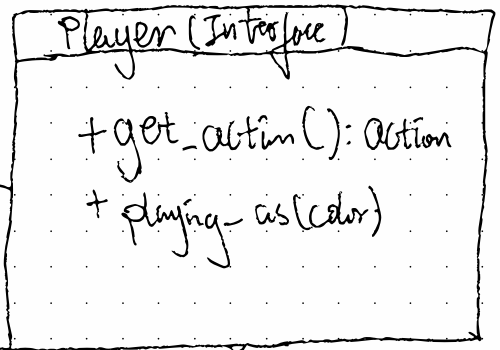 Player (Interface)
+ get_action(): action
+ playing_as(color)